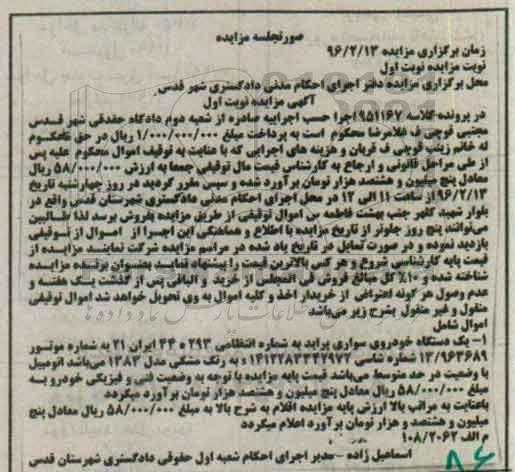 صورتجلسه مزایده
زمان برگزاری مزایده ۹۶/۲/۱۳
نوبت مزایده نوبت اول
محل برگزاری مزایده دفتر اجرای احکام مدنی دادگستری شهر قدس
آگهی مزایده نوبت اول
در پرونده کلاسه ۹۵۱۱۶۷ اجرا حسب اجراییه صادره از شعبه دوم دادگاه حقوقی شهر قدس
مجتبی قوچی ف غلامرضا محکوم است به پرداخت مبلغ ۱/۰۰۰/۰۰۰/۰۰۰ ریال در حق محکوم
له خانم زینب قوچی ف قربان و هزینه های اجرایی که با عنایت به توقیف اموال محکوم علیه پس
از طی مراحل قانونی و ارجاع به کارشناس قیمت مال توقیفی جمعا به ارزش ۵۸/۰۰۰/۰۰۰ ریال
معادل پنج میلیون و هشتصد هزار تومان برآورد شده و سپس مقرر گردید در روز چهارشنبه تاریخ
۹۶/۲/۱۳ از ساعت ۱۱ الی ۱۲ در محل اجرای احکام مدنی دادگستری شهرستان قدس واقع در
بلوار شهید کلهر جنب بهشت فاطمه س اموال توقیفی از طریق مزایده بفروش برسد لذا طالبین
می‌توانند پنج روز جلوتر از تاریخ مزایده با اطلاع و هماهنگی این اجرا از اموال توقیفی
بازدید نموده و در صورت تمایل در تاریخ یاد شده در مراسم مزایده شرکت نمایند مزایده از
قیمت پایه کارشناسی شروع و هر کس بالاترین قیمت را پیشنهاد نماید بعنوان برنده مزایده
شناخته شده و ۱۰٪ کل مبالغ فروش فی المجلس از خرید و الباقی پس از گذشت یک هفته و
عدم وصول هر گونه اعتراضی از خریدار اخذ و کلیه اموال به وی تحویل خواهد شد اموال توقیفی
منقول و غیر منقول بشرح زیر می‌باشد
اموال شامل
۱- یک دستگاه خودروی سواری پراید به شماره انتظامی ۲۹۳ م ۴۴ ایران ۲۱ به شماره موتور
۱۳/۹۶۳۶۸۹ شماره شاسی ۱۴۱۲۲۸۳۳۴۲۹۷۷ و به رنگ مشکی مدل ۱۳۸۳ می‌باشد اتومبیل
با وضعیت در حد متوسط می‌باشد قیمت پایه مزایده با توجه به وضعیت فنی و فیزیکی خودرو به
مبلغ ۵۸/۰۰۰/۰۰۰ ریال معادل پنج میلیون و هشتصد هزار تومان برآورد میگردد
باعنایت به مراتب بالا ارزش پایه مزایده اقلام به شرح بالا به مبلغ ۵۸/۰۰۰/۰۰۰ ریال معادل پنج
میلیون و هشتصد و هزار تومان برآورد اعلام میگردد
م الف ۱۰۸/۲۰۶۲
اسماعیل زاده -مدیر اجرای احکام شعبه اول حقوقی دادگستری شهرستان قدس
۸۶